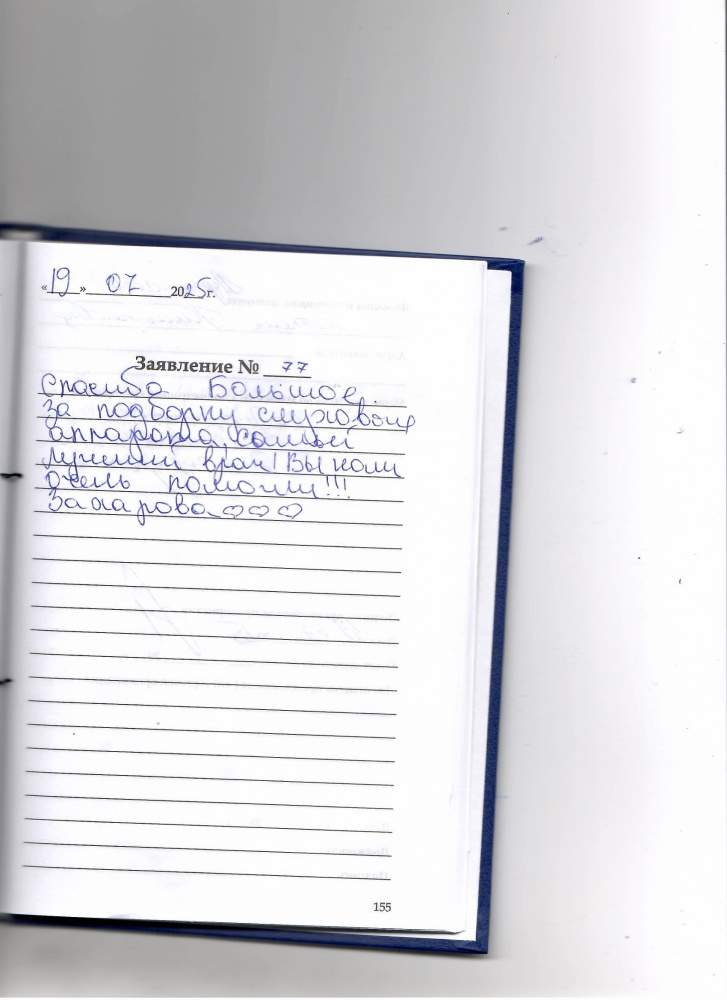 «19» 07 2025г.
Заявление № 77
Спасибо Большое
за подборку слуховой
аппарата, самый
лучший врач! Вы нам
очень помогли!!!
Захарова ♡♡♡
155